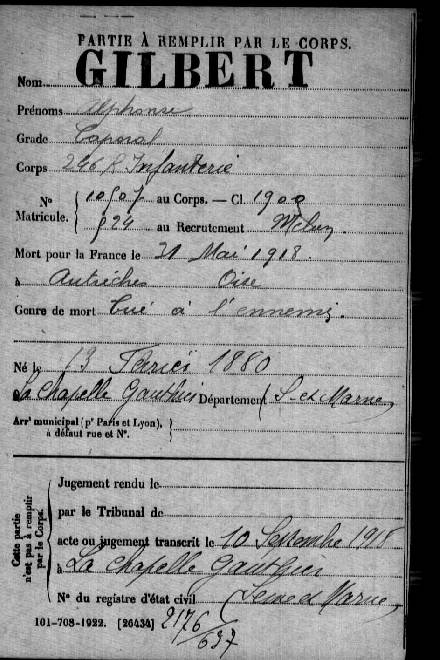 PARTIE À REMPLIR PAR LE CORPS.
GILBERT
Nom
Prénoms Alphonse
Grade Caporal
Corps 246 R Infanterie
N° Matricule. { 10507 au Corps. — Cl. 1900
924 au Recrutement Melun
Mort pour la France le 31 Mai 1918.
à Autrêches Oise
Genre de mort tué à l'ennemi.
Né le 13 Février 1880
à La Chapelle Gauthier Département S-et-Marne
Arr^t municipal (p^r Paris et Lyon), à défaut rue et N°. }
Cette partie n'est pas à remplir par le Corps.
Jugement rendu le
par le Tribunal de
acte ou jugement transcrit le 10 Septembre 1918
à La Chapelle Gauthier
N° du registre d'état civil (Seine et Marne)
101-708-1922. [26434] 2176/637